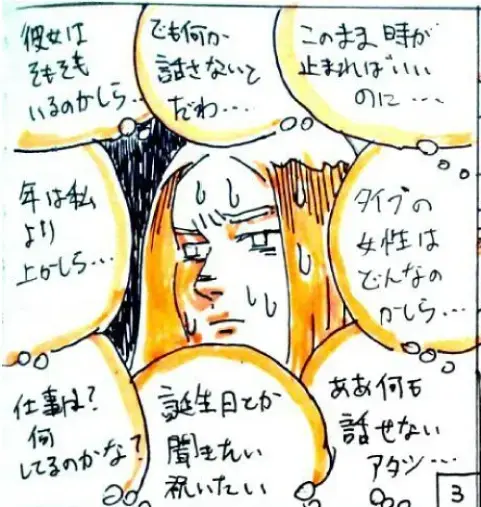 このまま時が
止まればいい
のに・・・
でも何か
話さないと
だわ・・・
彼女は
そもそも
いるのかしら・・・
タイプの
女性は
どんなの
かしら・・・
年は私
より
上かしら・・・
ああ何も
話せない
アタシ・・・
誕生日とか
聞きたい
祝いたい
仕事は?
何
してるのかな?
3